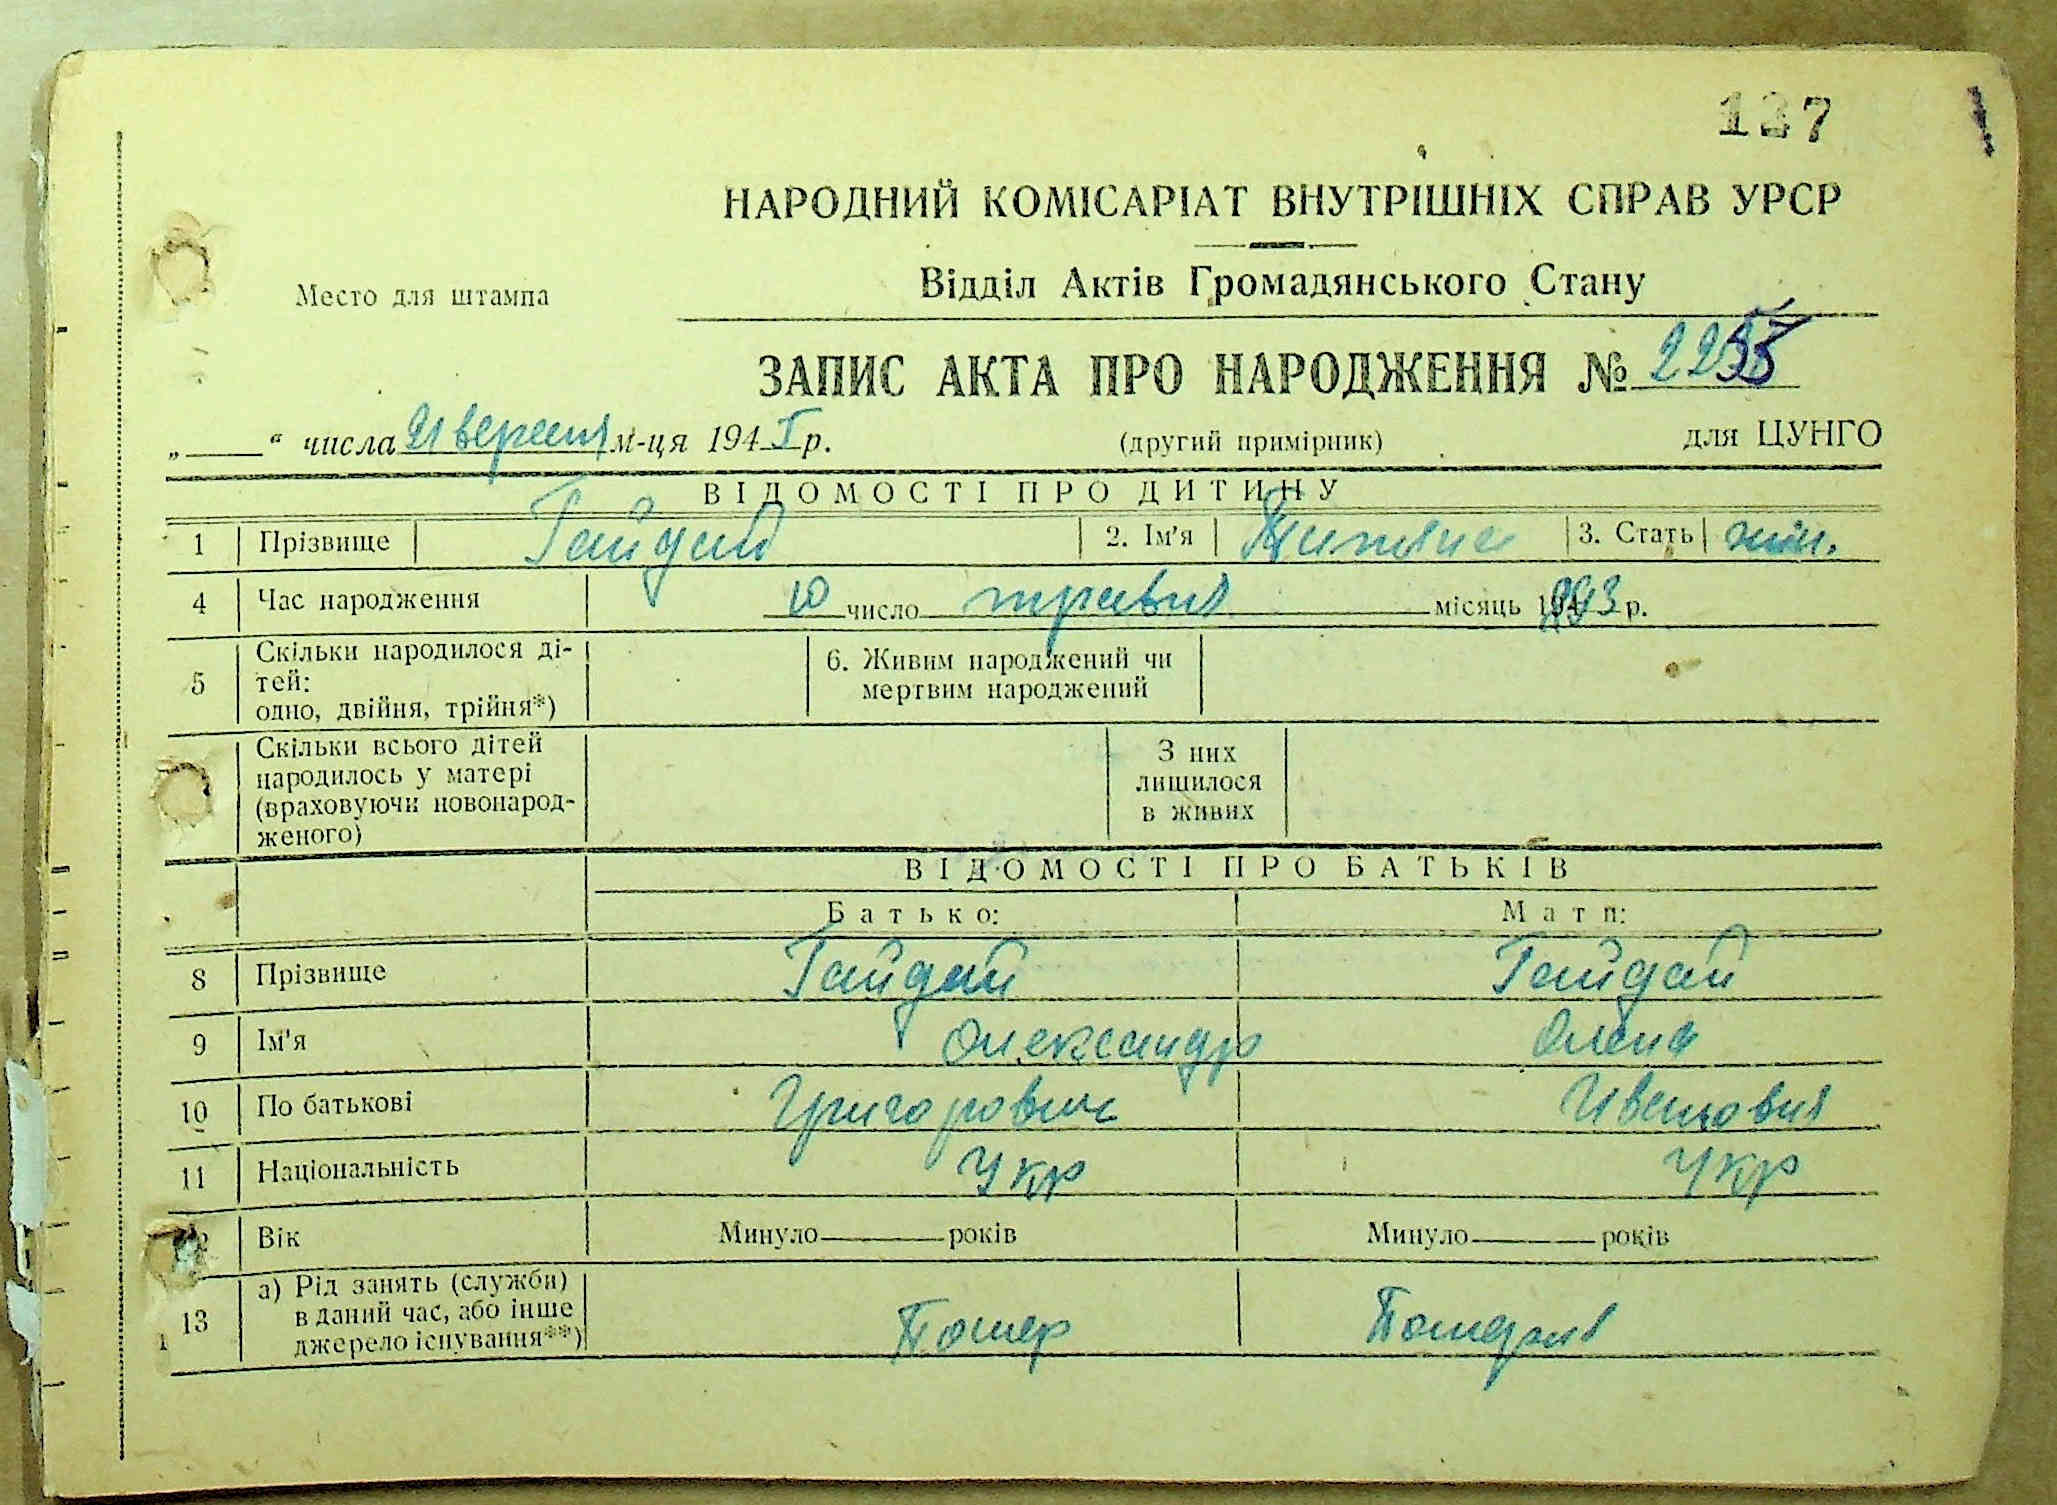 137
НАРОДНИЙ КОМІСАРІАТ ВНУТРІШНІХ СПРАВ УРСР
Место для штампа
Відділ Актів Громадянського Стану
ЗАПИС АКТА ПРО НАРОДЖЕННЯ №
„____“ числа 21 вересня м-ця 194 р.
(другий примірник)
для ЦУНГО
ВІДОМОСТІ ПРО ДИТИНУ
1 Прізвище Гайдай 2. Ім'я Титяна 3. Стать жін.
4 Час народження 10 число травня місяць р.
5 Скільки народилося ді-
тей:
одно, двійня, трійня*)
6. Живим народжений чи
мертвим народжений
Скільки всього дітей
народилось у матері
(враховуючи новонарод-
женого)
З них
лишилося
в живих
ВІДОМОСТІ ПРО БАТЬКІВ
Батько: Мати:
8 Прізвище Гайдай Гайдай
9 Ім'я Олександр Олена
10 По батькові Григорович Ивановна
11 Національність Укр Укр
12 Вік Минуло____років Минуло____років
13 а) Рід занять (служби)
в даний час, або інше
джерело існування**)
Помер Померла